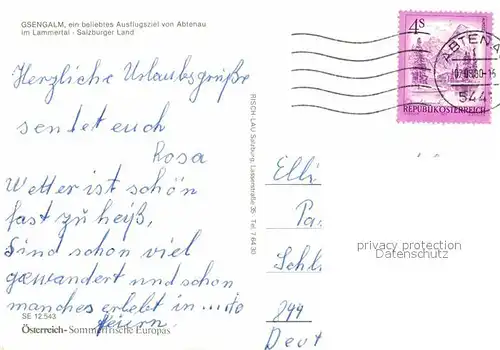 GSENGALM, ein beliebtes Ausflugsziel von Abtenau
im Lammertal - Salzburger Land
Herzliche Urlaubsgrüße
sendet euch
Rosa
Wetter ist schön
fast zu heiß,
Sind schon viel
gewandert und schon
manches erlebt in ...
feiern.
SE 12.543
Österreich - Sommerfrische Europas
RISCH-LAU Salzburg, Lasserstraße 35 - Tel. 7 64 30
4 S
REPUBLIK ÖSTERREICH
ABTENAU
544
Elli
Pa
Schl
844
Deut
privacy protection
Datenschutz